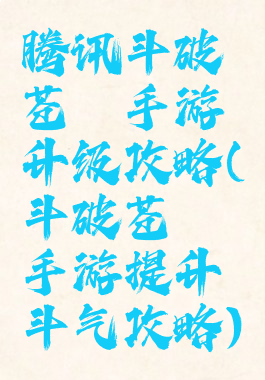 腾讯斗破
苍 手游
升级攻略(
斗破苍
手游提升
斗气攻略)